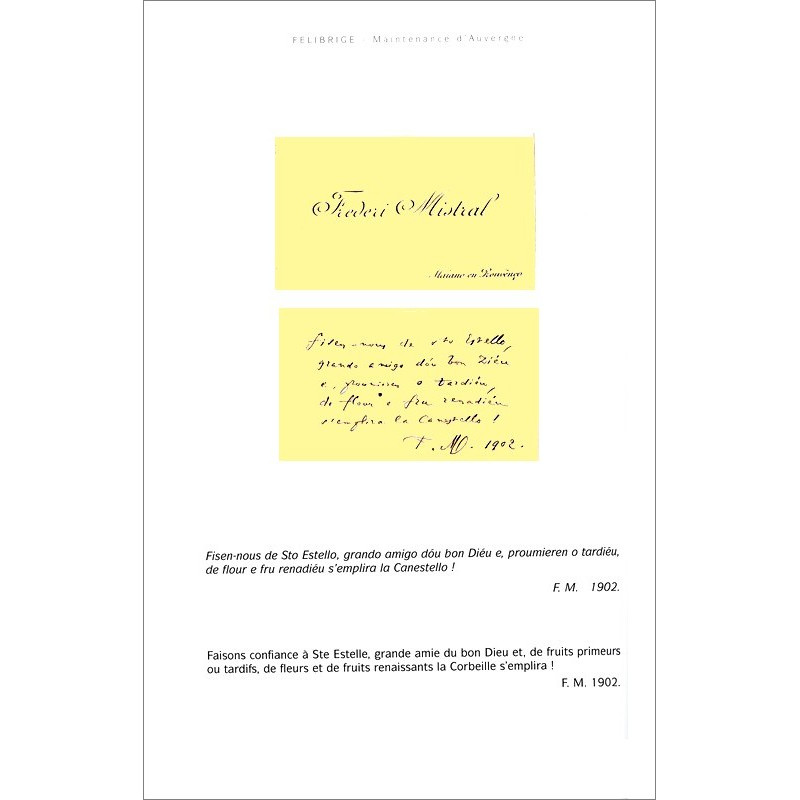 FELIBRIGE - Maintenance d'Auvergne
Frederi Mistral
Maiano en Prouvènço
Fisen-nous de Sto Estello,
grando amigo dóu bon Diéu
e, proumieren o tardiéu,
de flour e fru renadiéu
s'emplira la Canestello !
F. M. 1902.
Fisen-nous de Sto Estello, grando amigo dóu bon Diéu e, proumieren o tardiéu,
de flour e fru renadiéu s'emplira la Canestello !
F. M. 1902.
Faisons confiance à Ste Estelle, grande amie du bon Dieu et, de fruits primeurs
ou tardifs, de fleurs et de fruits renaissants la Corbeille s'emplira !
F. M. 1902.